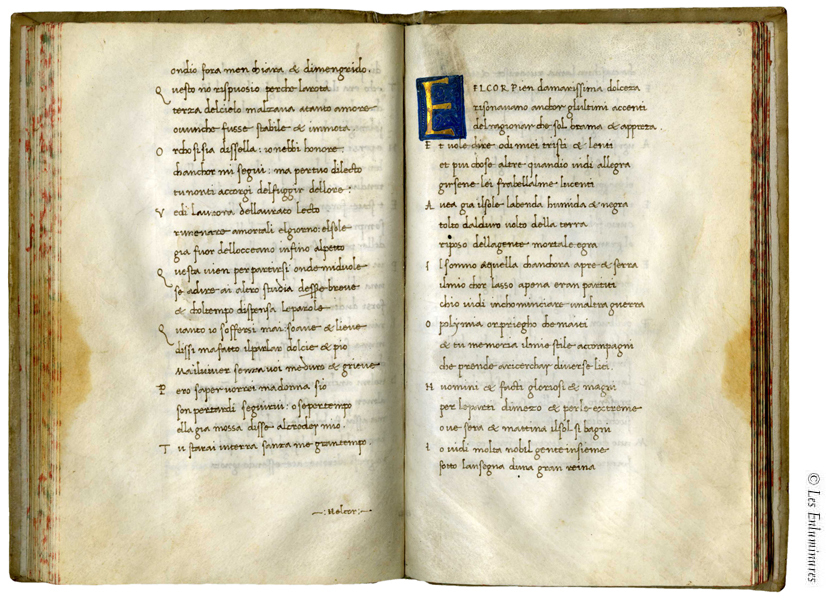 ondio fora men chiara & dimengrido.
Questo no rispuosio perche larota
terza delcielo malzava atanto amore
ovunche fusse stabile & inmota
Or chosista dissella: io nebbi honore
chanchor mi segui: ma pertuo dilecto
tu nonti accorgi delfuggir dellore:
Vedi laurora dellaurato lecto
rimenarce amortali elgiorno: elsole
gia fuor dellocceano infino alpetto
Questa vien per partirsi onde miduole
se adire ai altro studia desse breve
& coltempo dispensa leparole
Quanto io soffersi mai: soave & lieve
dissi mafatto ilparlar dolcie & pio
Mailviver senza voi me duro & grieve
Pero saper vorrei madonna sio
son pertardi seguirvi: o sepertempo
ella gia mossa disse alcreder mio.
Tu starai interra sanza me gran tempo.
Nelcor
ELCOR Pien damarissima dolceza
risonavano anchor gliultimi accenti
delragionar che sol brama & appreza.
Et vole dire odi miei tristi & lenti
et piu chose altre quandio vidi allegra
girsene lei frabellalme lucenti
Avea gia ilsole labenda humida & negra
tolto dalduro volto della terra
riposo dellagente mortale egra
Ilsonno aquella chanchora apre & serra
ilmio chor lasso apena eran partiti
chio vidi inchominciare unaltra guerra
O polymia or priegho che maiti
& tu memoria ilmie stile accompagni
che prende aricerchar diverse liti.
Huomini & facti gloriosi & magni
per leparti dimezo & per le extreme
ove sera & mattina ilsol si bagni
Io vidi molta nobil gente insieme
sotto lansegna duna gran reina
© Les Enluminures